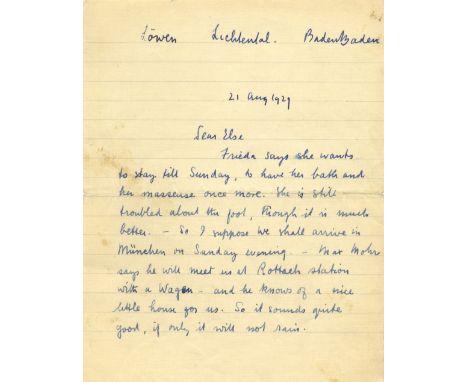 Löwen Lichtental. BadenBaden
21 Aug 1929
Dear Else
Frieda says she wants
to stay till Sunday, to have her bath and
her masseuse once more. She is still
troubled about the foot, Though it is much
better. — So I suppose we shall arrive in
München on Sunday evening. — Max Mohr
says he will meet us at Rottach station
with a Wagen — and he knows of a nice
little house for us. So it sounds quite
good, if only it will not rain.